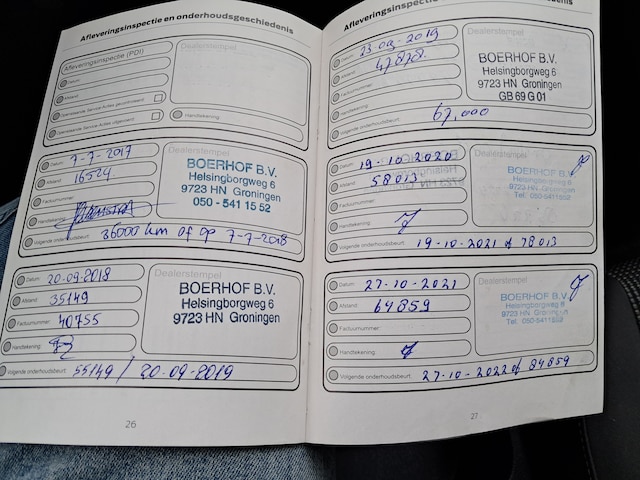 Afleveringsinspectie en onderhoudsgeschiedenis
Afleveringsinspectie (PDI)
Dealerstempel
Datum:
Afstand:
Openstaande Service-Acties gecontroleerd
Openstaande Service-Acties uitgevoerd
Handtekening:
Datum: 7-7-2017
Dealerstempel
Afstand: 16524
Factuurnummer:
Handtekening:
BOERHOF B.V.
Helsingborgweg 6
9723 HN Groningen
050 - 541 15 52
Volgende onderhoudsbeurt: 36000 km of op 7-7-2018
Datum: 20-09-2018
Dealerstempel
Afstand: 35149
Factuurnummer: 40755
Handtekening:
BOERHOF B.V.
Helsingborgweg 6
9723 HN Groningen
Volgende onderhoudsbeurt: 55149 / 20-09-2019
26
Afleveringsinspectie
Datum:
Dealerstempel
Afstand: 47878
Factuurnummer:
Handtekening:
BOERHOF B.V.
Helsingborgweg 6
9723 HN Groningen
GB 69 G 01
Volgende onderhoudsbeurt: 67,000
Datum: 19-10-2020
Dealerstempel
Afstand: 58013
Factuurnummer:
Handtekening:
BOERHOF B.V.
Helsingborgweg 6
9723 HN Groningen
Tel. 050-5411552
Volgende onderhoudsbeurt: 19-10-2021 of 78013
Datum: 27-10-2021
Dealerstempel
Afstand: 64859
Factuurnummer:
Handtekening:
BOERHOF B.V.
Helsingborgweg 6
9723 HN Groningen
Tel. 050-5411552
Volgende onderhoudsbeurt: 27-10-2022 of 84859
27